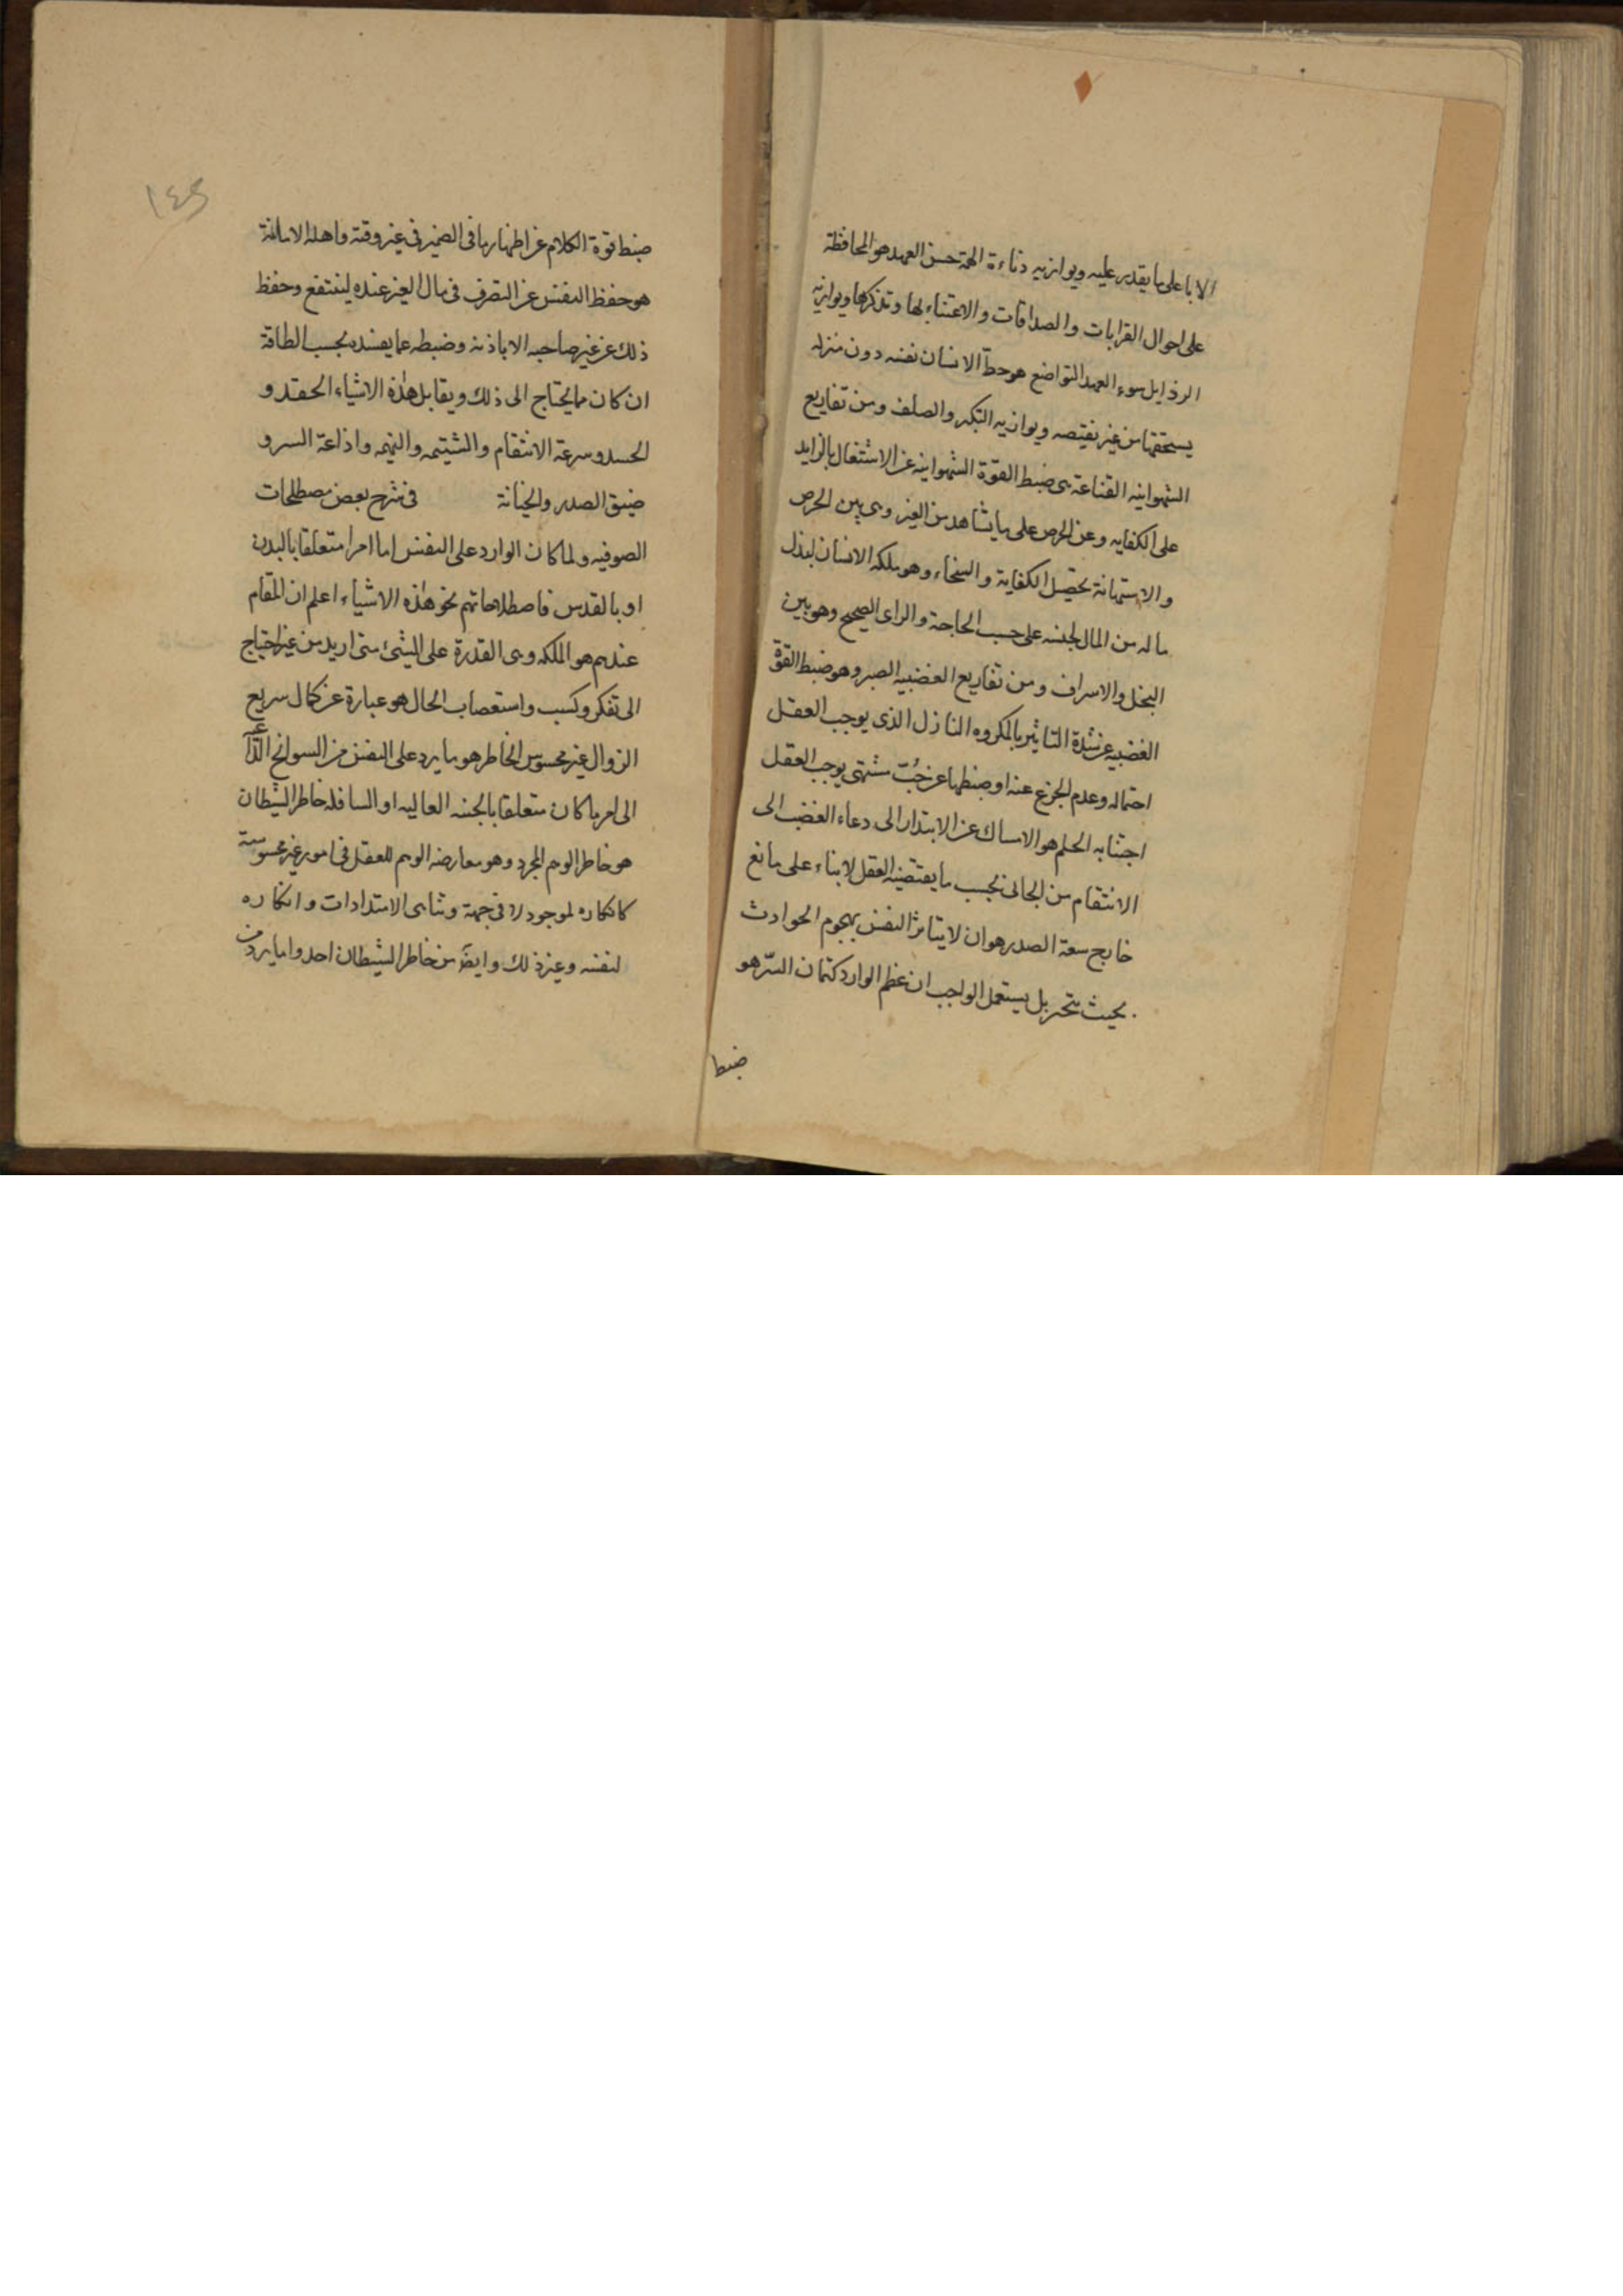 الا باعلى ما يقدر عليه ويوازيه دناءة الهمة حسن العهد هو المحافظة
على احوال القرابات والصداقات والاعتناء بها وتذكرها ويوازيه
الرذايل سوء العهد التواضع هو حط الانسان نفسه دون منزله
يستحقها من غير نقيصه ويوازيه التكبر والصلف ومن تفاريع
الشهوانيه القناعة هى ضبط القوة الشهوانيه عن الاشتغال بالزايد
على الكفايه وعن الحرص على ما يشاهد من الغير وهى بين الحرص
والاستهانة بتحصيل الكفاية والسخاء وهو ملكه الانسان لبذل
ماله من المال لجنسه على حسب الحاجة والراى الصحيح وهو بين
البخل والاسراف ومن تفاريع الغضبيه الصبر وهو ضبط القوة
الغضبيه عن شدة التاثير بالمكروه النازل الذى يوجب العقل
احتماله وعدم الجزع عنه او ضبطها عن حُبّ مشتهى يوجب العقل
اجتنابه الحلم هو الامساك عن الابتدار الى دعاء الغضب الى
الانتقام من الجانى بحسب ما يقتضيه العقل لابناء على مانع
خارج سعة الصدر هو ان لا يتاثر النفس بهجوم الحوادث
بحيث يتحير بل يستعمل الواجب ان عظم الوارد كتمان السّر هو
ضبط
١٤٩
ضبط قوة الكلام عن اظهار ما فى الضمير فى غير وقته واهله الامانة
هو حفظ النفس عن التصرف فى مال الغير عنده لينتفع وحفظ
ذلك عن غير صاحبه الا باذنه وضبطه عما يفسده بحسب الطاقة
ان كان مما يحتاج الى ذلك ويقابل هذه الاشياء الحقد و
الحسد وسرعة الانتقام والشتيمه والنميمه واذاعة السر و
ضيق الصدر والخيانة فى شرح بعض مصطلحات
الصوفيه ولما كان الوارد على النفس اما امرا متعلقا بالبدن
او بالقدس فاصطلاحاتهم نحو هذه الاشياء اعلم ان المقام
عندهم هو الملكه وهى القدرة على الشئ متى اريد من غير احتياج
الى تفكر وكسب واستعصاب الحال هو عبارة عن كمال سريع
الزوال غير محسوس الخاطر هو ما يرد على النفس من السوانح الداعية
الى امر ما كان متعلقا بالجنبه العاليه او السافله خاطر الشيطان
هو خاطر الوهم المجرد وهو معارضه الوهم للعقل فى امور غير محسوسة
كانكاره لموجود لا فى جهة وتناهى الامتدادات وانكاره
لنفسه وغير ذلك وايضً من خاطر الشيطان احد واما يرد من